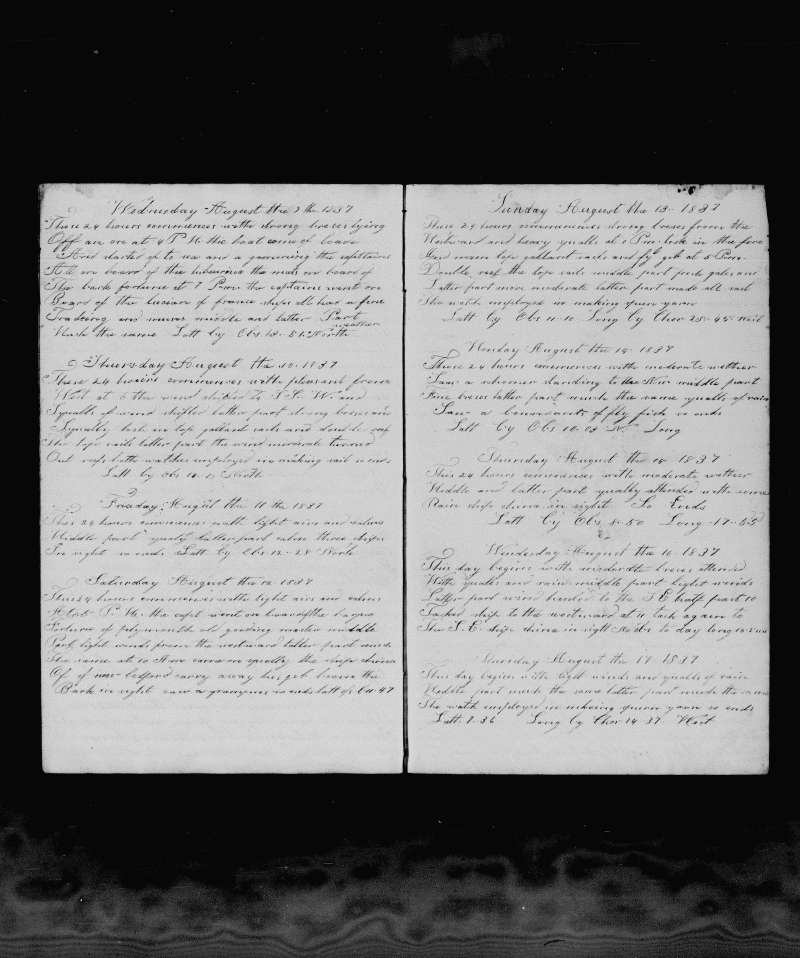 Wednesday August the 9 the 1837
These 24 hours commences with strong breses lying
Off an on at 4 P M the boat came of board
And started of to sea and a gamming the capttains
All on board of the hibernia the mats on board of
The bark fortune at 7 Pm the captains went on
Board of the lucian of france ships all has a fine
Tradeing and muvs middle and latter Part
weather
Much the same Latt by Obs 13-51 North
Thursday August the 10- 1837
These 24 hours commences with pleasant from
West at 6 the wind shifted to S S W and
Squalls of wind shifted latter part strong breses and
Squally took in top gallant sails and double reef
The top sails latter part the wind moderate turned
Out reefs both watches employed in making sail so ends
Latt by obs 12- North
Friday August the 11 the 1837
This 24 hours commences with light airs and calms
Middle part squaly latter part calm three ships
In sight so ends Latt by Obs 12-28 North
Saturday August the 12 1837
These 24 hours commences with light airs and calms
At P M the capt went on board the barque
Fortune of plymouth old gooding master middle
Part light winds from the westward latter part much
The same at 10 A m came on squally the ship china
Of of new-bedford carry away her geb boom the
Bark in sight saw a grampus so ends latt obs 11-47
Sunday August the 13- 1837
These 24 hours commences strong breses from the
Westward and heavy squalls at 1 Pm took in the fore
And main top gallant sails and fly gib at 5 Pm
Double reef the top sails middle part fresh gales and
Latter part more moderate latter part made all sail
The watch employed in making spun yarn
Latt by Obs 11-10 Long by Chor 25-45 West
Monday August the 14- 1837
These 24 hours commences with moderate wether
Saw a schooner standing to the N middle part
Fine breses latter part much the same squalls of rain
Saw a of fly fish so ends
Latt by Obs 10-03 N Long
Thursday August the 15- 1837
This 24 hours commences with moderate wether
Middle and latter part squally attended with some
Rain ship china in sight So Ends
Latt by Obs 8-50 Long-17-55
Wendesday August the 16- 1837
This day begins with moderate breses attended
With squalls and rain middle part light winds
Latter part wind hauled to the S E half past 10
Tacked ship to the westward at 11 tack again to
The S.E. ship china in sight No obs to day long
Thursday August the 17- 1837
This day begins with light winds and squalls of rain
Middle part much the same latter part much the same
The watch employed in makeing spun yarn so ends
Latt 7-36 Long by Chor 14-37 West